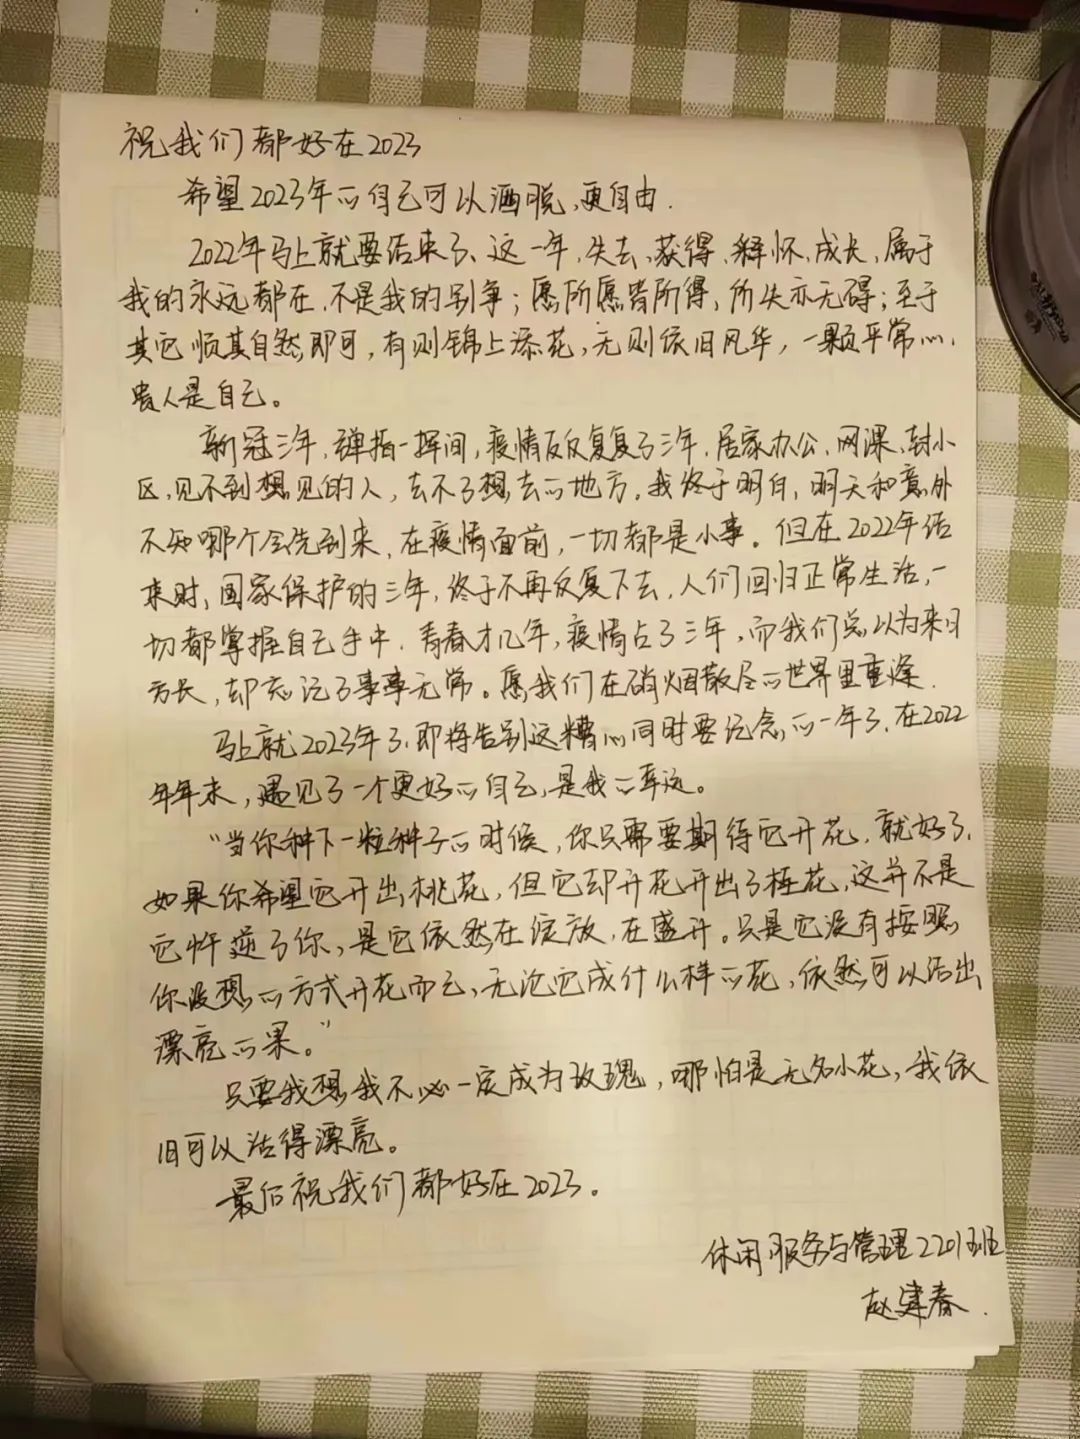 祝我们都好在2023
希望2023年的自己可以洒脱,更自由.
2022年马上就要结束了、这一年,失去、获得、释怀、成长,属于
我的永远都在,不是我的别争;愿所愿皆所得,所失亦无碍;至于
其它顺其自然即可,有则锦上添花,无则依旧风华,一颗平常心,
贵人是自己。
新冠三年,弹指一挥间,疫情反反复复了三年,居家办公、网课、封小
区,见不到想见的人,去不了想去的地方。我终于明白,明天和意外
不知哪个会先到来,在疫情面前,一切都是小事。但在2022年结
束时,国家保护的三年,终于不再反复下去,人们回归正常生活,一
切都掌握自己手中.青春才几年,疫情占了三年,而我们总以为来日
方长,却忘记了事事无常。愿我们在硝烟散尽的世界里重逢.
马上就2023年了,即将告别这糟心同时要纪念的一年了,在2022
年年末,遇见了一个更好的自己,是我的幸运。
“当你种下一粒种子的时候,你只需要期待它开花,就好了,
如果你希望它开出桃花,但它却开花开出了桂花,这并不是
它忤逆了你,是它依然在绽放,在盛开。只是它没有按照
你设想的方式开花而已,无论它成什么样的花,依然可以活出
漂亮的果。”
只要我想,我不必一定成为玫瑰,哪怕是无名小花,我依
旧可以活得漂亮。
最后祝我们都好在2023。
休闲服务与管理2201班
赵建春.